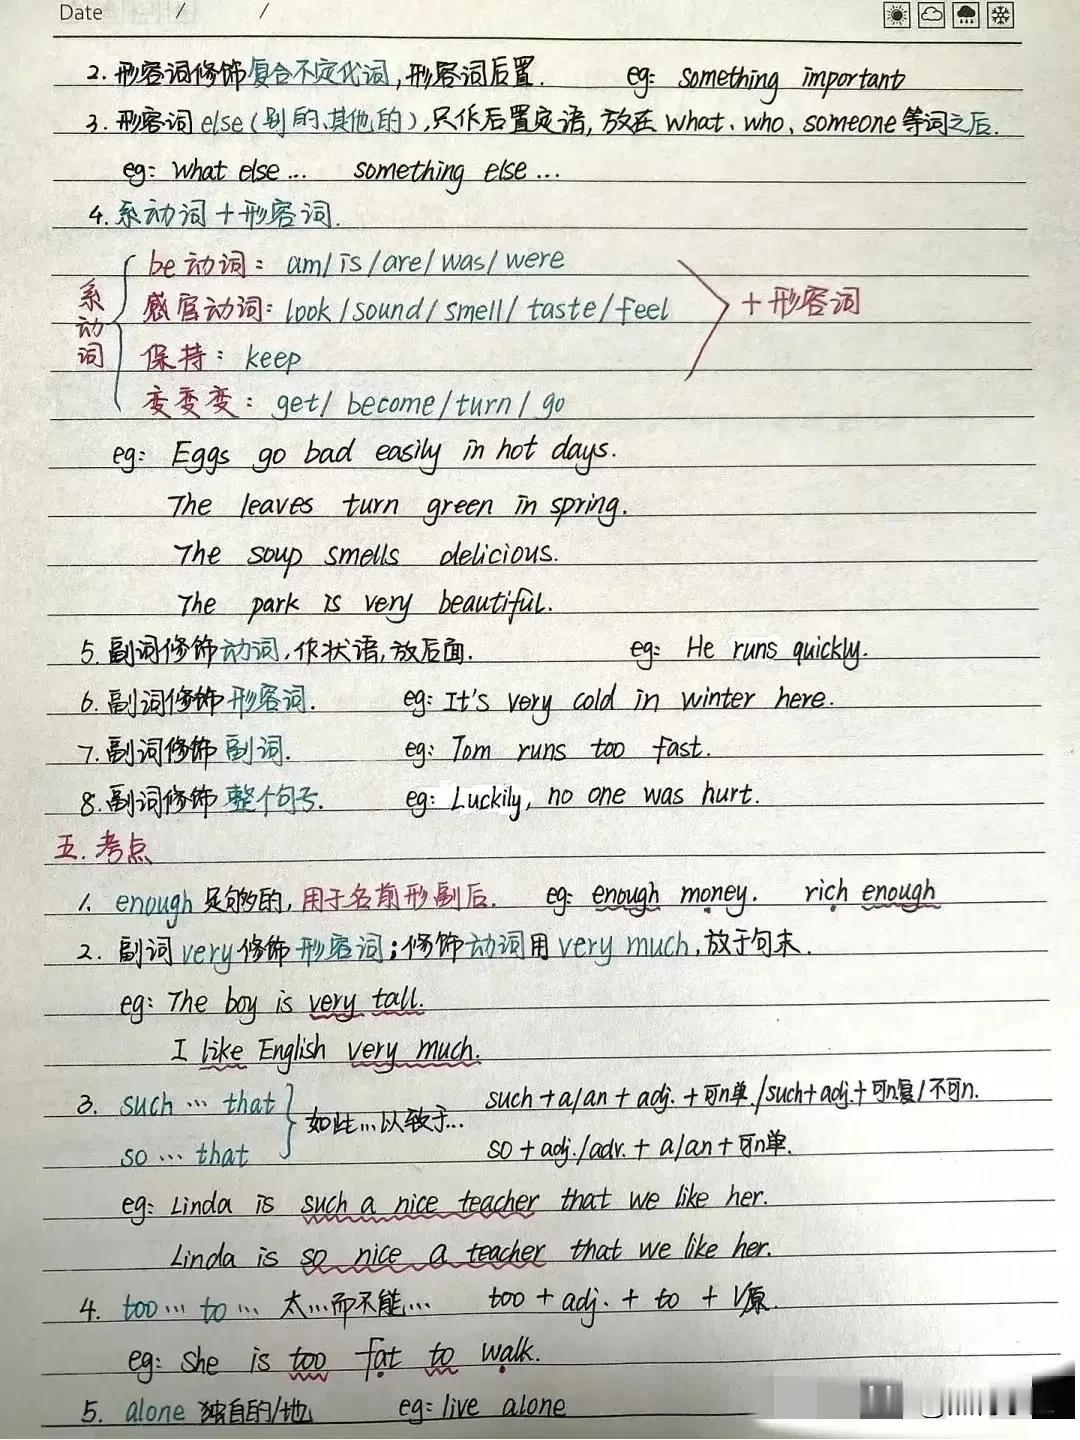 Date / /
2. 形容词修饰复合不定代词,形容词后置. eg: something important
3. 形容词else(别的、其他的),只作后置定语,放在what、who、someone等词之后.
eg: what else ... something else ...
4. 系动词+形容词.
系动词
be动词: am/is/are/was/were
感官动词: look/sound/smell/taste/feel
+形容词
保持: keep
变变变: get/become/turn/go
eg: Eggs go bad easily in hot days.
The leaves turn green in spring.
The soup smells delicious.
The park is very beautiful.
5. 副词修饰动词,作状语,放后面. eg: He runs quickly.
6. 副词修饰形容词. eg: It's very cold in winter here.
7. 副词修饰副词. eg: Tom runs too fast.
8. 副词修饰整个句子. eg: Luckily, no one was hurt.
五. 考点
1. enough足够的,用于名前形副后. eg: enough money. rich enough
2. 副词very修饰形容词;修饰动词用very much,放于句末.
eg: The boy is very tall.
I like English very much.
3. such ... that such+a/an+adj.+可n单./such+adj.+可n复/不可n.
如此...以致于...
so ... that so+adj./adv.+a/an+可n单.
eg: Linda is such a nice teacher that we like her.
Linda is so nice a teacher that we like her.
4. too ... to ... 太...而不能... too + adj. + to + V原.
eg: she is too fat to walk.
5. alone 独自的/地 eg: live alone